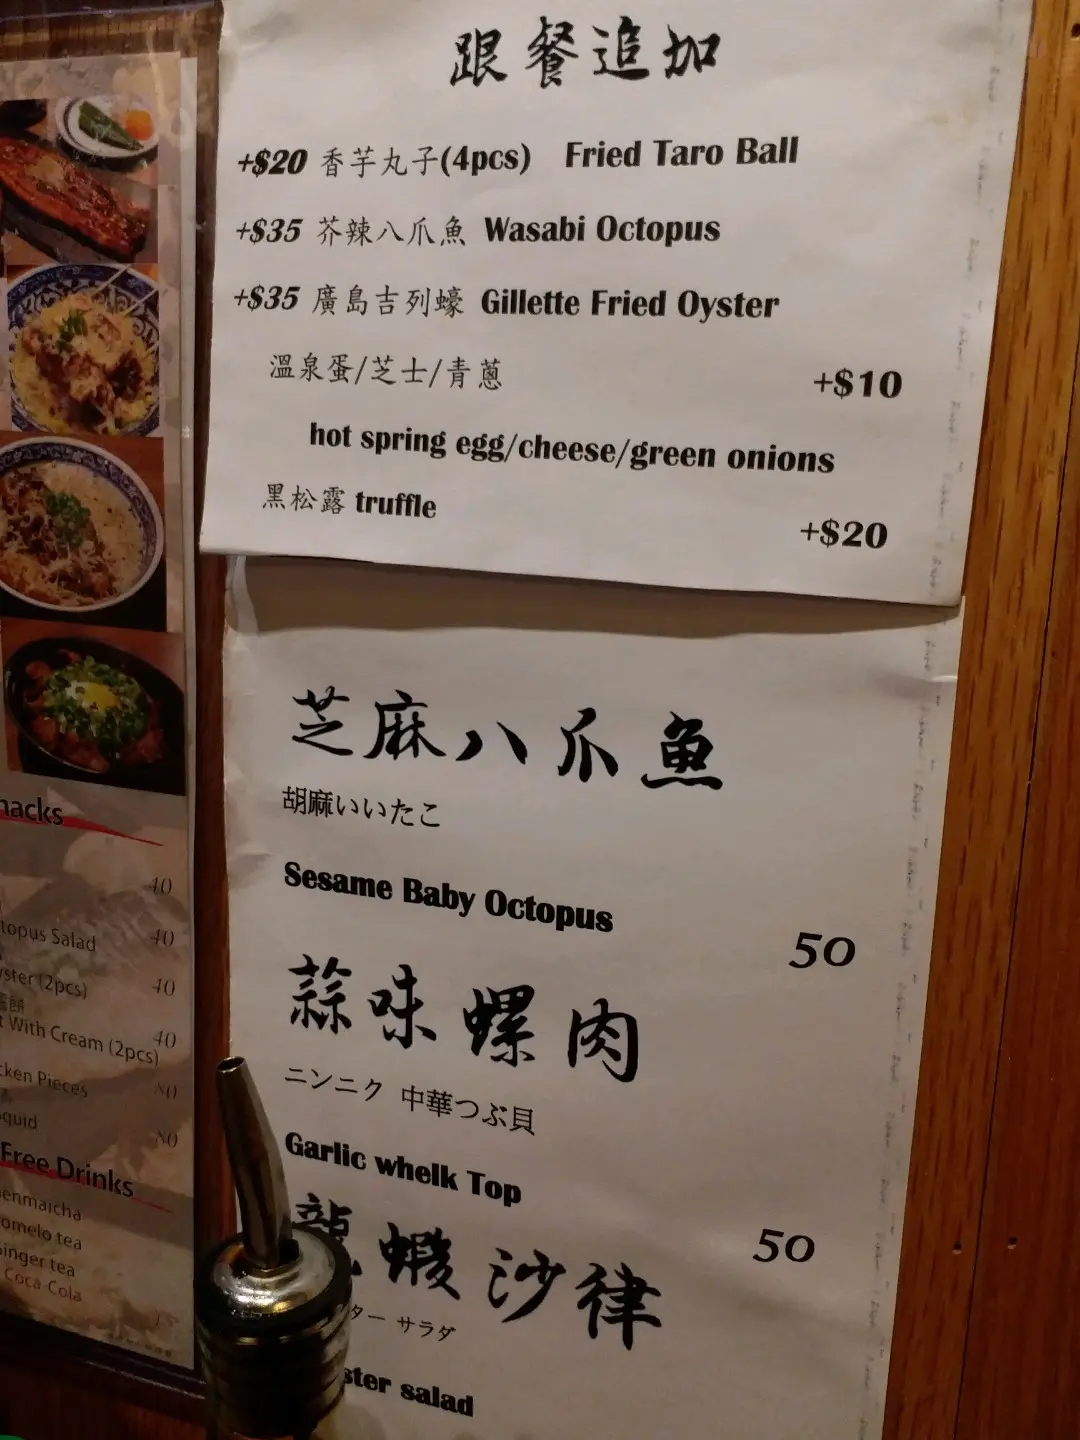 跟餐追加
+$20 香芋丸子(4pcs) Fried Taro Ball
+$35 芥辣八爪魚 Wasabi Octopus
+$35 廣島吉列蠔 Gillette Fried Oyster
溫泉蛋/芝士/青蔥 +$10
hot spring egg/cheese/green onions
黑松露 truffle +$20
芝麻八爪魚
胡麻いいたこ
Sesame Baby Octopus
50
蒜味螺肉
ニンニク 中華つぶ貝
Garlic whelk Top
50
龍蝦沙律
ター サラダ
ster salad
nacks
40
topus Salad 40
yster (2pcs) 40
t With Cream (2pcs) 40
cken Pieces
squid
Free Drinks
enmaicha
omelo tea
inger tea
Coca-Cola